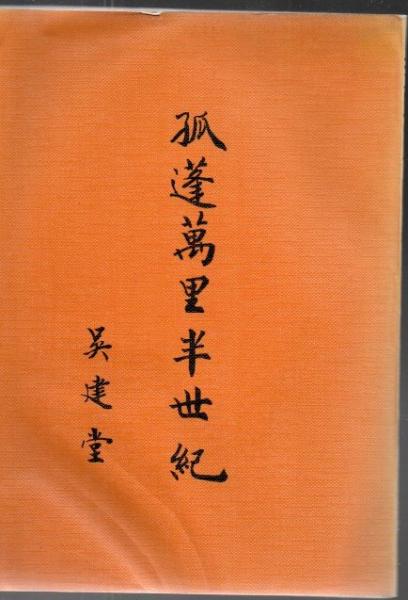 孤蓬萬里半世紀
吳建堂